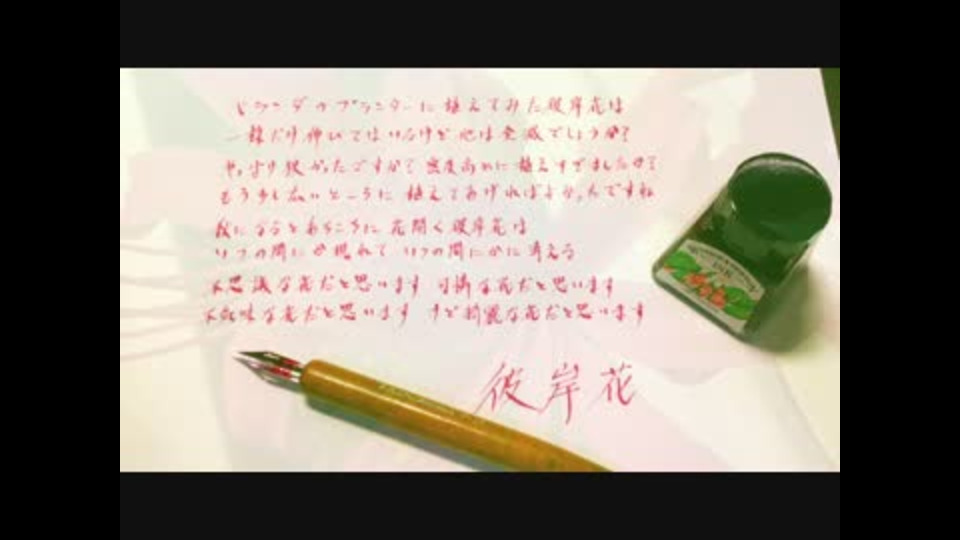 ベランダのプランターに植えてみた彼岸花は
一株だけ伸びてはいるけど他は全滅でしょうか?
やっぱり狭かったですか? 密度高めに植えすぎましたか?
もう少し広いところに植えてあげればよかったんですね
秋になるとあちこちに花開く彼岸花は
いつの間にか現れて いつの間にかに消える
不思議な花だと思います 可憐な花だと思います
不気味な花だと思います けど綺麗な花だと思います
彼岸花